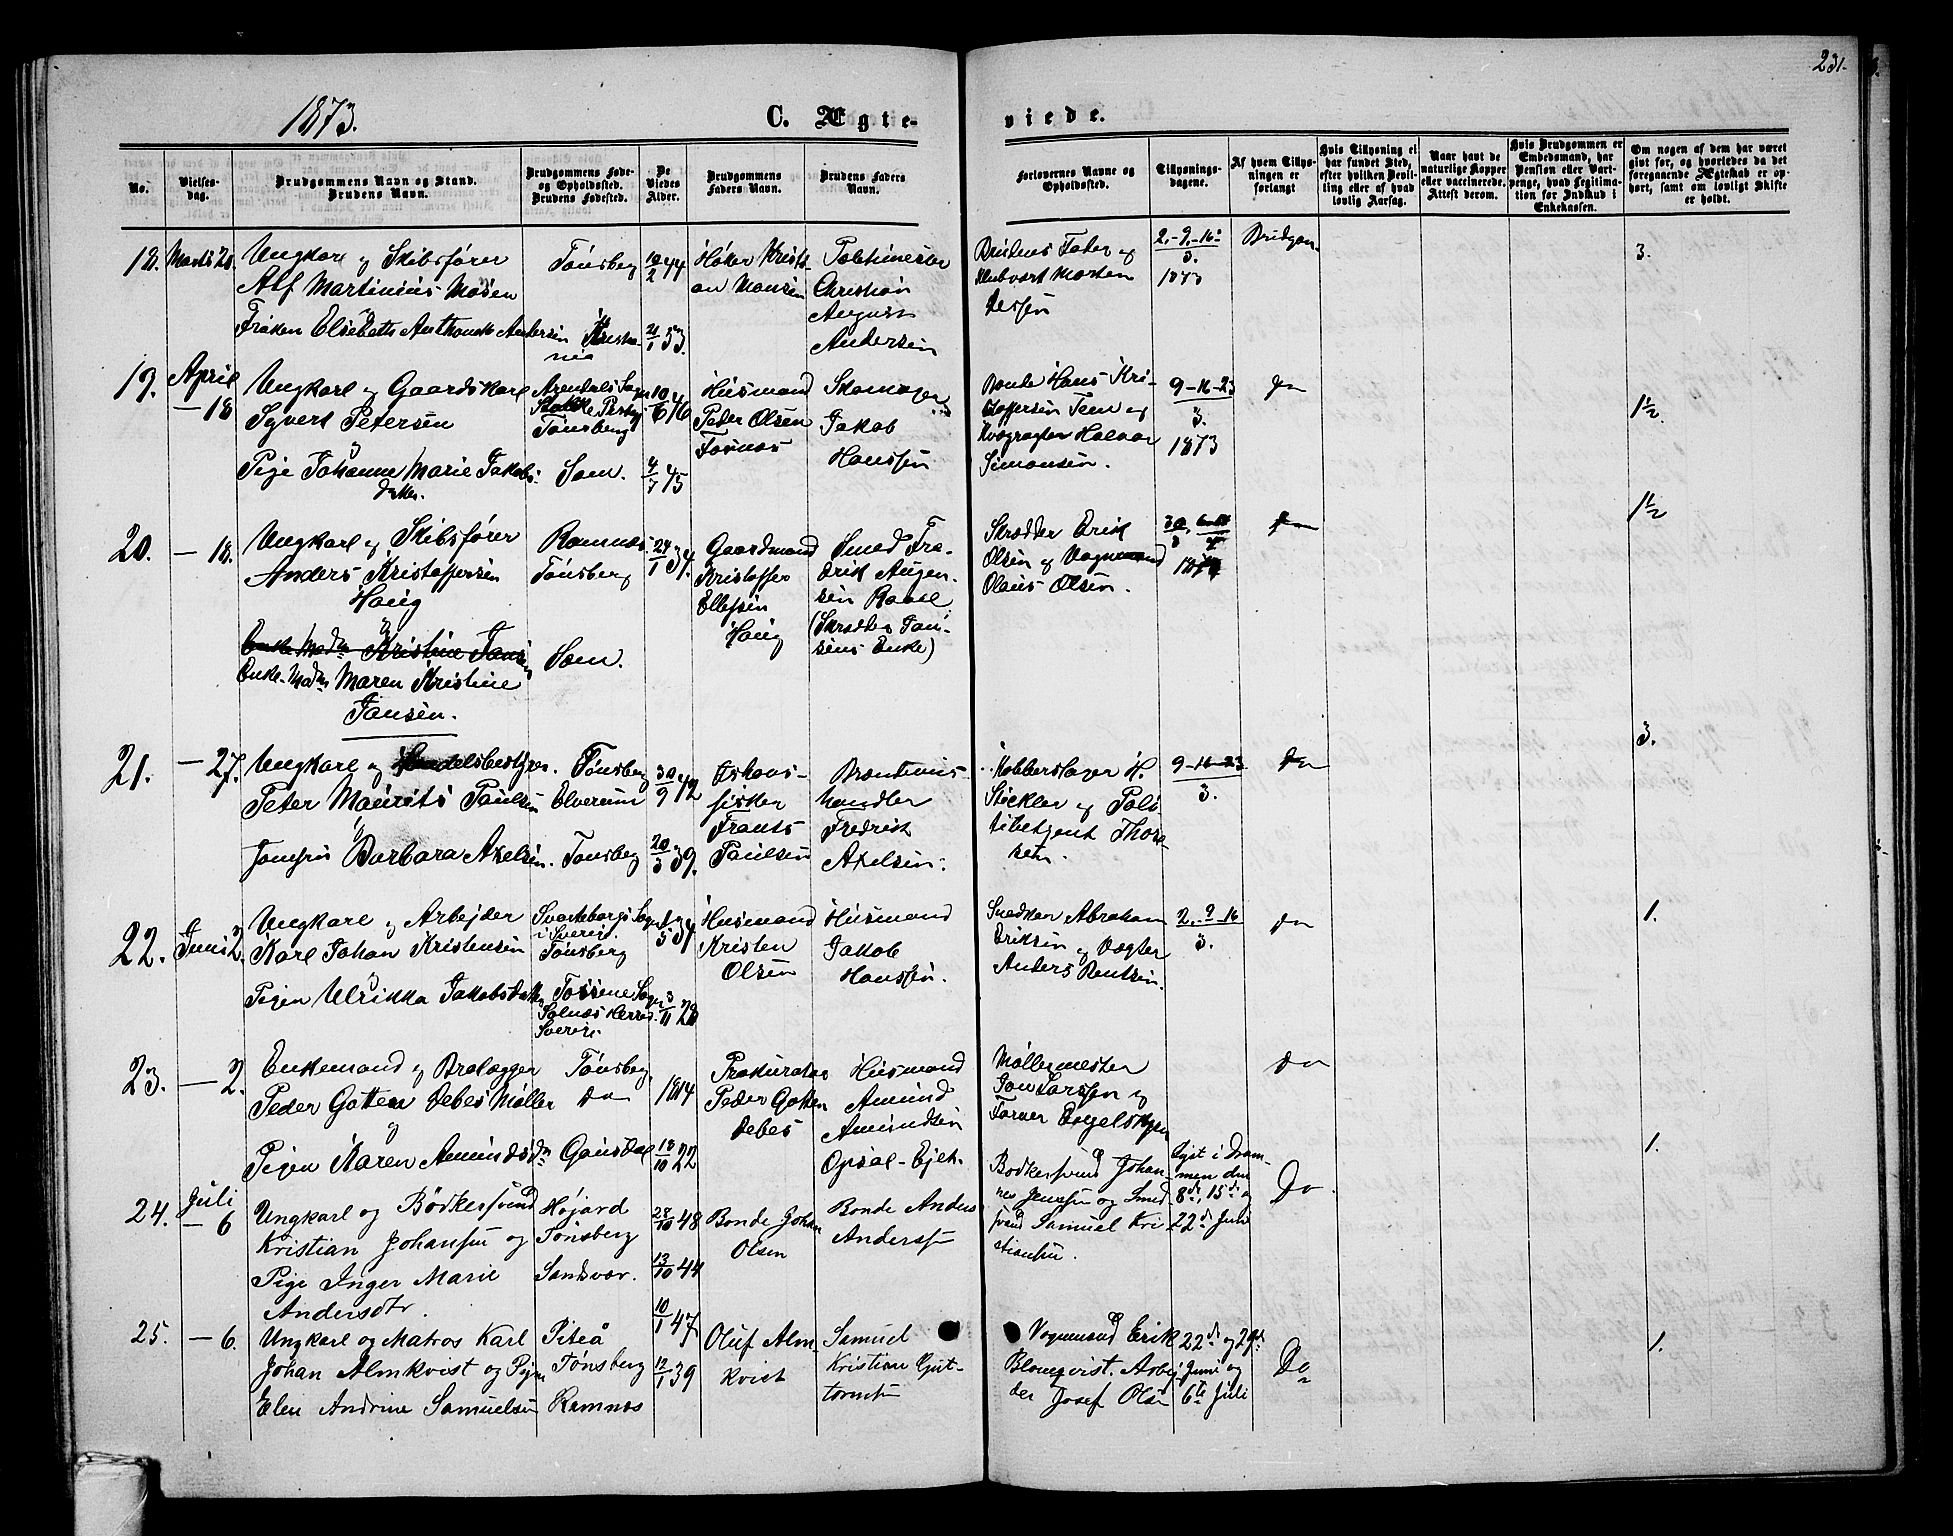 231.
1873.
C. Ægte-
viede.
No.
Vielses-
dag.
Brudgommens Navn og Stand.
Brudens Navn.
Brudgommens Føde-
og Opholdssted.
Brudens Fødested.
De
Viedes
Alder.
Brudgommens
Faders Navn.
Brudens Faders
Navn.
Forlovernes Navne og
Opholdssted.
Tillysnings-
dagene.
Af hvem Tillys-
ningen er
forlangt
Hvis Tillysning ei
har fundet Sted,
efter hvilken Bevil-
ling eller af hvad
lovlig Aarsag.
Naar havt de
naturlige Kopper
eller vaccinerede.
Attest derom.
Hvis Brudgommen er
Embedsmand, har
Pension eller Vart-
penge, hvad Legitima-
tion for Indskud i
Enkekassen.
Om nogen af dem har været
givt før, og hvorledes da det
foregaaende Ægteskab er op-
hørt, samt om lovligt Skifte
er holdt.
18. Marts 20.
Ungkarl og Skibsfører
Alf Martinius
og
Frøken Elsebeth Anthonette Andersen
Tønsberg
Kristia-
nia
10/2 44
21/1 53.
Høker Kristi-
an Hansen
Christian
August
Andersen
Brudens Fader og
Morten
2.-9.-16/3.
1873
Brudgom.
3.
19. April
- 18
Ungkarl og Gaardskarl
Syvert Petersen
og
Pige Johanne Marie Jakobs-
datter.
Arendals Sogn
Tønsberg
Sem.
10/6 46
4/7 45
Husmand
Peder Olsen
Fosnæs
Skomager
Jakob
Hanssen
Bonde Hans Kri-
stoffersen Tem og
Halvor
Simonsen.
9-16-23/3.
1873
Do
1½.
20. - 18.
Ungkarl og Skibsfører
Anders Kristoffersen
Haug
og
Enke Madm Kristine Jansen
Enke-Madm Maren Kristine
Jansen.
Ramnæs
Tønsberg
Sem.
24/1 34.
Gaardmand
Kristoffer
Ellefsen
Haug
Smed Fre-
derik Augen-
sen Raael
(Skrædder Jan-
sens Enke)
Skrædder Erik
Olsen og Vognmand
Olaus Olsen.
Do
1½
21. - 27.
Ungkarl og Handelsbestyrer
Peter Maurits Paulsen
og
Jomfru Barbara Axelsen.
Tønsberg
Elverum
Tønsberg
30/9 42
20/3 39.
Frants
Paulsen
Brændevins-
handler
Fredrik
Axelsen.
Kobberslager H.
Støckler og Poli-
tibetjent Thore-
sen.
9-16-23/3.
Do
3.
22. Juni 2.
Ungkarl og Arbejder
Karl Johan Kristensen
og
Pigen Ulrikka Jakobsdatter
Svarteborgs Sogn
i Sverig.
Tønsberg
Tossene Sogn
Herred
Sverige
Husmand
Kristen
Olsen
Husmand
Jakob
Hanssen.
Snedker Abraham
Eriksen og Vægter
Anders Bentsen.
2.-9-16/3.
Do
1.
23. - 2.
Enkemand og Brolægger
Peder Gotten Debes Møller
og
Pigen Karen Amundsdtr
Tønsberg
Do
Gausdal
1814
18/10 22
Prokurator
Peder Gotten
Debes
Husmand
Amund
Amundsen
Opsal-Ejet.
Møllermester
Jon Larssen og
Farver Engelskjøn
Do
1.
24. Juli
- 6
Ungkarl og Bødkersvend
Kristian Johansen og
Pige Inger Marie
Andersdtr.
Højord
Tønsberg
Sandsvær.
28/10 48
13/10 44
Bonde Johan
Olsen
Bonde Anders
Anderssen
Bødkersvend Johan-
nes Jensen og Smed-
svend Samuel Kri-
stiansen.
Lyst i Dram-
men den
8de, 15de og
22de Juni
Do
25. - 6.
Ungkarl og Matros Karl
Johan Almkvist og Pigen
Elen Andrine Samuelsen
Piteå
Tønsberg
Ramnæs
10/1 47
12/1 39
Oluf Alm-
kvist
Samuel
Kristian Gut-
tormsen
Vognmand Erik
Blomqvist. Arbej-
der Josef Olsen
22de og 29de
Juni og
6te Juli
Do
1.